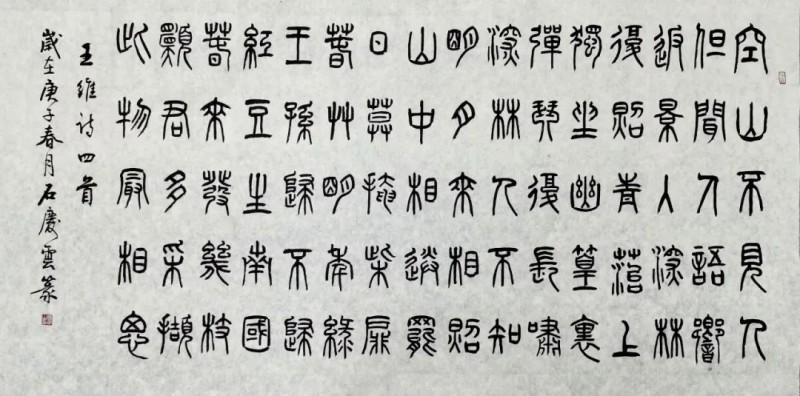 空山不見人
但聞人語響
返景入深林
復照青苔上
獨坐幽篁裏
彈琴復長嘯
深林人不知
明月來相照
山中相送罷
日暮掩柴扉
春艸明年綠
王孫歸不歸
紅豆生南國
春來發幾枝
顥君多采擷
此物最相思
王維詩四首
歲在庚子春月石慶雲篆